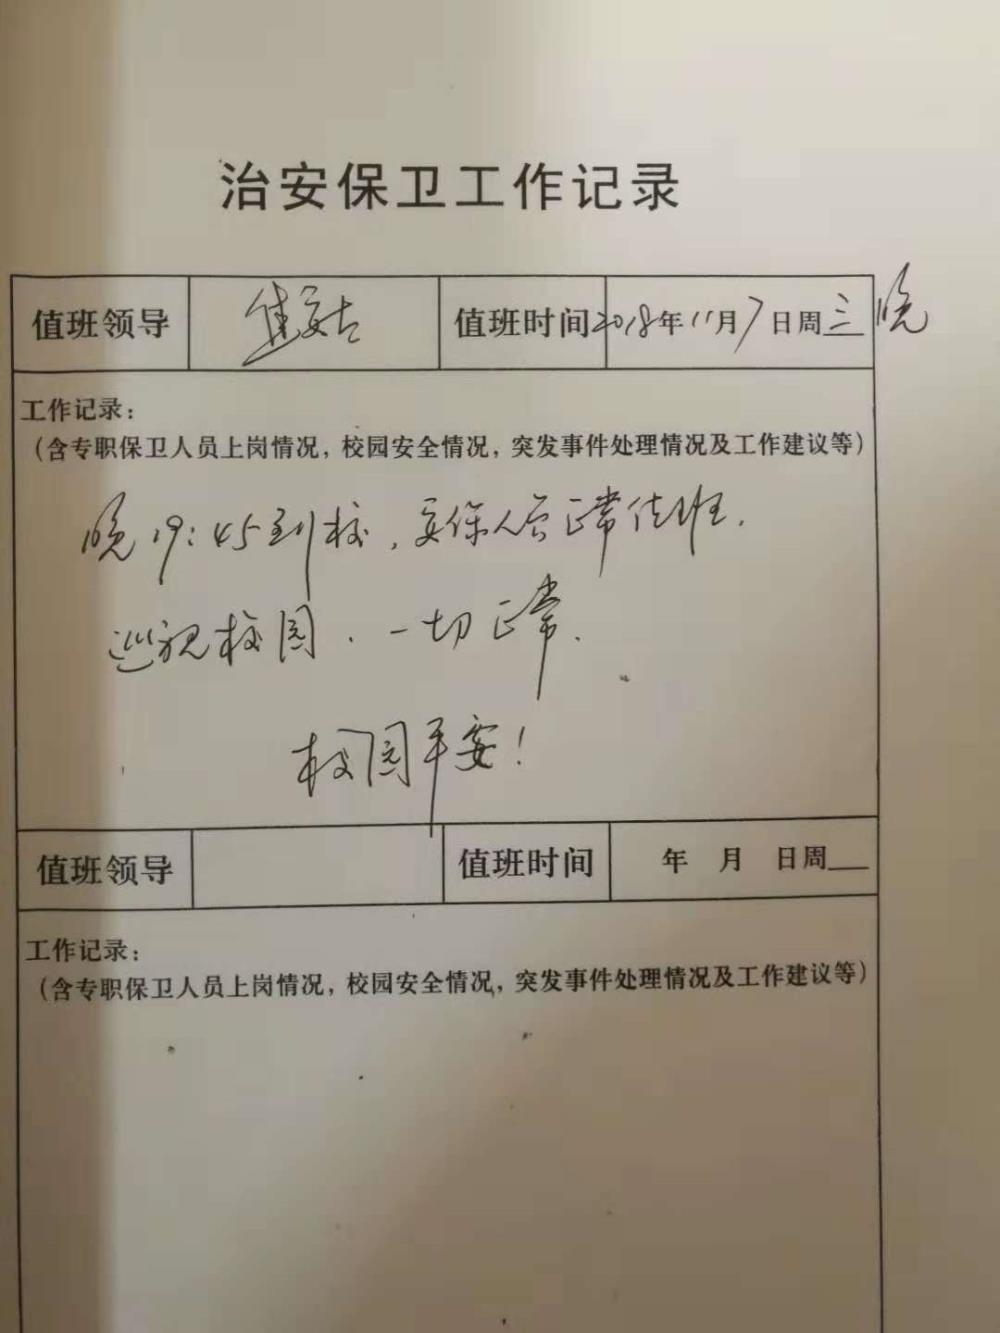 治安保卫工作记录
值班领导 值班时间 2018年11月7日周三晚
工作记录：
（含专职保卫人员上岗情况，校园安全情况，突发事件处理情况及工作建议等）
晚19:45到校，安保人员正常值班.
巡视校园.一切正常.
校园平安!
值班领导 值班时间 年 月 日周
工作记录：
（含专职保卫人员上岗情况，校园安全情况，突发事件处理情况及工作建议等）